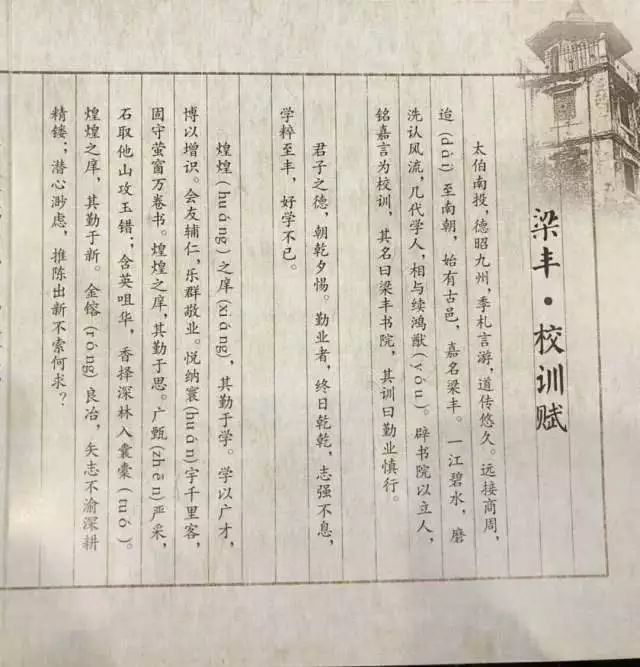 梁丰·校训赋
太伯南投，德昭九州，季札言游，道传悠久。远接商周，
迨(dài)至南朝，始有古邑，嘉名梁丰。一江碧水，磨
洗认风流，几代学人，相与续鸿猷(yóu)。辟书院以立人，
铭嘉言为校训，其名曰梁丰书院，其训曰勤业慎行。
君子之德，朝乾夕惕。勤业者，终日乾乾，志强不息，
学粹至丰，好学不已。
煌煌(huáng)之庠(xiáng)，其勤于学。学以广才，
博以增识。会友辅仁，乐群敬业。悦纳寰(huán)宇千里客，
固守萤窗万卷书。煌煌之庠，其勤于思。广甄(zhēn)严采，
石取他山攻玉错；含英咀华，香择深林入囊橐(tuó)。
煌煌之庠，其勤于新。金镕(róng)良冶，矢志不渝深耕
精镂；潜心渺虑，推陈出新不索何求？